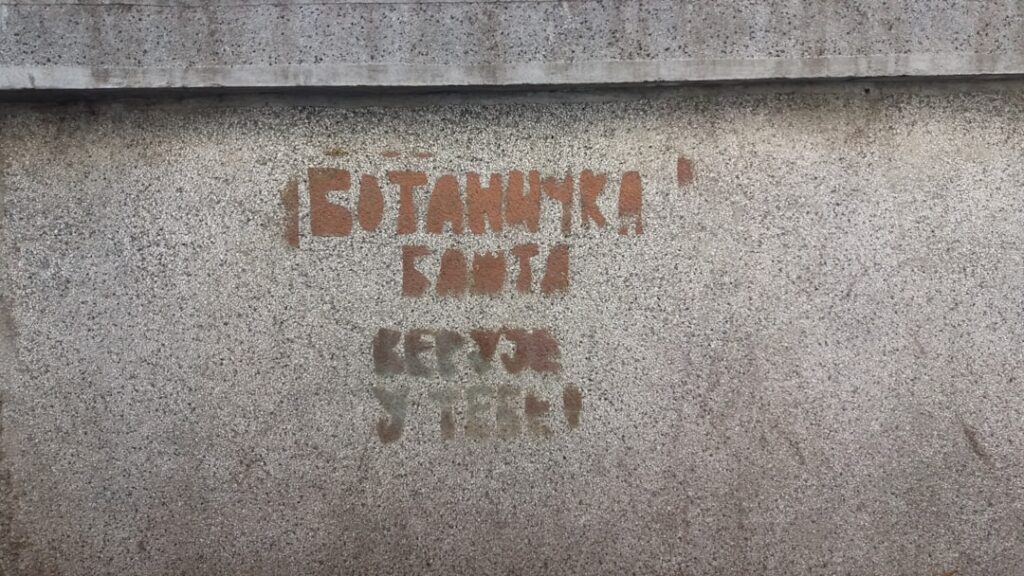 БОТАНИЧКА
БАШТА
ВЕРУЈЕ
У ТЕБЕ!